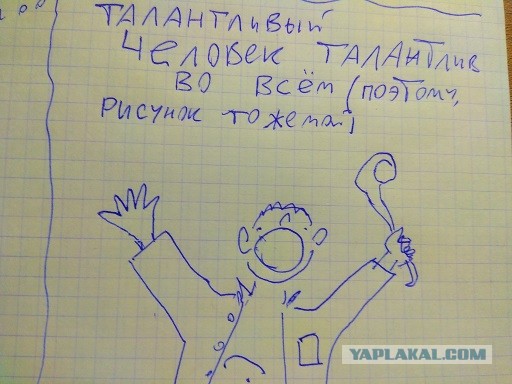 ТАЛАНТЛИВЫЙ
ЧЕЛОВЕК ТАЛАНТЛИВ
ВО ВСЁМ (ПОЭТОМУ,
РИСУНОК ТОЖЕ МОЙ)
YAPLAKAL.COM